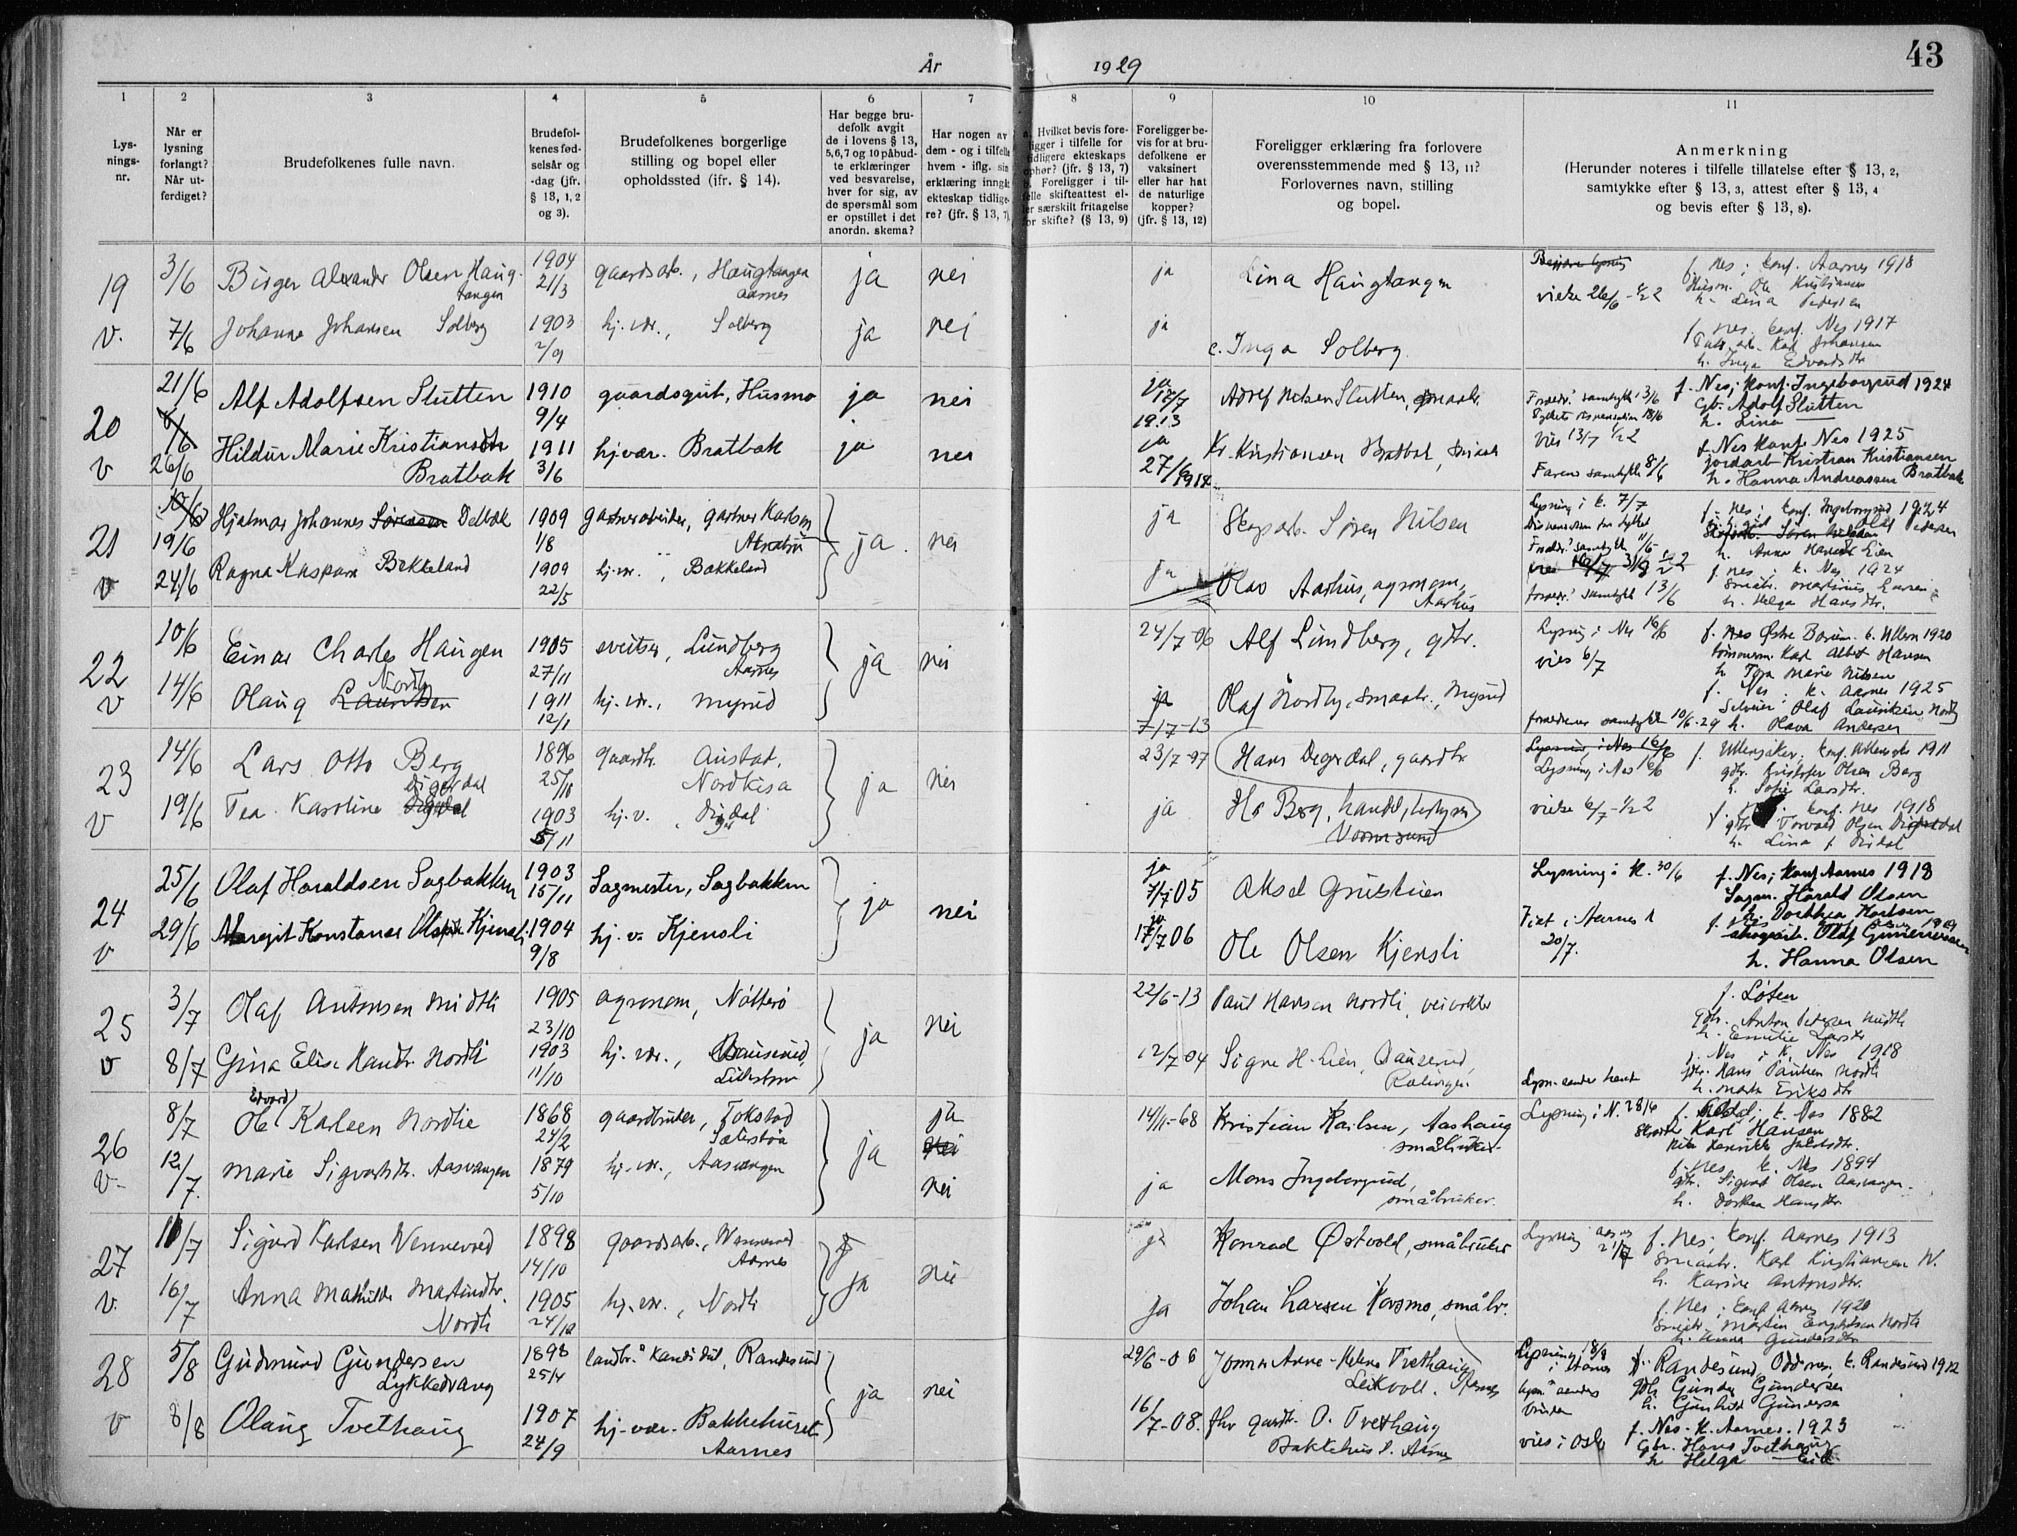 43
År 1929
1 2 3 4 5 6 7 8 9 10 11
Lys-
nings-
nr.
Når er
lysning
forlangt?
Når ut-
ferdiget?
Brudefolkenes fulle navn.
Brudefol-
kenes fød-
selsår og
-dag (jfr.
§ 13, 1, 2
og 3).
Brudefolkenes borgerlige
stilling og bopel eller
opholdssted (jfr. § 14).
Har begge bru-
defolk avgit
de i lovens § 13,
5,6,7 og 10 påbud-
te erklæringer
ved besvarelse,
hver for sig, av
de spørsmål som
er opstillet i det
anordn. skema?
Har nogen av
dem - og i tilfelle
hvem - iflg. sin
erklæring inngåt
ekteskap tidlige-
re? (jfr. § 13, 7)
a. Hvilket bevis fore-
ligger i tilfelle for
tidligere ekteskaps
ophør? (jfr. § 13, 7)
b. Foreligger i til-
felle skifteattest el-
ler særskilt fritagelse
for skifte? (§ 13, 9)
Foreligger be-
vis for at bru-
defolkene er
vaksinert
eller har hat
de naturlige
kopper?
(jfr. § 13, 12)
Foreligger erklæring fra forlovere
overensstemmende med § 13, 11?
Forlovernes navn, stilling
og bopel.
Anmerkning
(Herunder noteres i tilfelle tillatelse efter § 13, 2,
samtykke efter § 13, 3, attest efter § 13, 4
og bevis efter § 13, 8).
19 3/6 Birger Alexander Olsen Haug-
tangen 1904 21/3 gaardsarb., Haugtangen
Aarnes ja nei ja Lina Haugtangen
vielse 26/6 - 1/2 2
f. Nes; konf. Aarnes 1918
Husm. Ole Kristiansen
h. Lina Pedersen
v. 7/6 Johanne Johansen Solberg 1903 2/9 hj. vær., Solberg ja nei ja Inga Solberg
f. Nes. konf. Nes 1917
Karl Johansen
h. Inga Edvardsdtr
20 21/6 Alf Adolfsen Slutten 1910 9/4 gaardsgut, Husmo ja nei ja 17/7 1913 Adolf Nilsen Slutten, smaabr.
Foreldr. samtykk 13/6
vies 13/7 1/2 2
f. Nes; konf. Ingeborgrud 1924
Gbr. Adolf Slutten
h. Lina
v 26/6 Hildur Marie Kristiansdtr
Bratbak 1911 3/6 hj.vær. Bratbak ja nei ja 27/6 1914 Kr. Kristiansen Bratbak, smaabr
Farens samtykke 8/6
f. Nes konf. Nes 1925
jordarb Kristian Kristiansen
h. Hanna Andreassen Bratbak
21 10/6 19/6 Hjalmar Johannes Sørensen Delbæk 1909 1/8 gartnerarbeider, gartner Karlsen ja. nei ja Skogsarb. Søren Nilsen
Lysning i k. 7/7
f. Nes; konf. Ingeborgrud 1924
h. Anna
v 24/6 Ragna Kaspara Bakkeland 1909 22/5 hj. vær., Bakkeland ja Olav Aarhus, agronom,
Aarhus
foreldr. samtykk 13/6
f. Nes; k. Nes 1924
h. Helga Hansdtr.
22 10/6 Einar Charles Haugen 1905 27/11 sveitser, Lundberg
Aarnes ja nei 24/7-06 Alf Lundberg, gbr.
Lysning i Nes 16/6
vies 6/7
f. Nes Østre Bærum k. Ullern 1920
tømmerm. Karl Albert Hansen
h. Tora Marie Nilsen
v 14/6 Olaug Lauritsen Nordby 1911 12/1 hj. vær., Myrud ja 7/7-13 Olaf Nordby, smaabr., Myrud
foreldrenes samtykke 10/6-29
f. Nes; k. Aarnes 1925
Selveier Olaf Lauritsen Nordby
h. Olava Andersen
23 14/6 Lars Otto Berg 1896 25/ gaardbr. Austad,
Nordkisa ja nei 23/7-97 Hans Degerdal, gaardbr
Lysning i Nes 16/6
Lysning i Nes
f. Ullensaker, konf. Ullensaker 1911
gbr. Kristofer Olsen Berg
h. Sofie Larsdtr.
v 19/6 Tea Karoline Digerdal 1903 5/11 hj. v. Digerdal ja Hs Berg, handelsbestyrer
Vormsund
vielse 6/7 - 1/2 2
f. Nes. konf. Nes 1918
gbr Torvald Olsen Digerdal
h. Lina f. Dirdal
24 25/6 Olaf Haraldsen Sagbakken 1903 15/11 Sagmester, Sagbakken ja nei ja 7/7 05 Aksel Gruestuen
Lysning i K. 30/6
f. Nes; konf Aarnes 1918
Sagm. Harald Olsen
h. Dorthea Karlsen
v 29/6 Margit Konstanse Olsen Kjensli 1904 9/8 hj. v. Kjensli ja 17/7 06 Ole Olsen Kjensli
Viet i Aarnes k
20/7.
f. Nes 1919
skogsarb. Olaf Gunerius
h. Hanna Olsen
25 3/7 Olaf Antonsen Midtli 1905 23/10 agronom, Nøtterø ja nei 22/6-13 Paul Hansen Nordli, veivokter
f. Løten
gbr. Anton Pedersen Midtli
h. Emilie Larsdtr
v 8/7 Gina Elise Hansdtr. Nordli 1903 11/10 hj. vær., Bausund,
Lillestrøm 12/7-04 Signe H. Lien, Bausund,
Rælingen
Lysn. sendes hende
f. Nes; k. Nes 1918
gbr. Hans Paulsen Nordli
h. Marte Eriksdtr
26 8/7 Ole Edvard Karlsen Nordlie 1868 24/2 gaardbruker, Fokstad
Sæterstøa ja ja nei 14/11-68 Kristian Karlsen, Aashaug
småbruker.
Lysning i N. 28/6
f. Odal; k. Nes 1882
Karl Hansen
v. 12/7. Marie Sigvartsdtr. Aasvangen 1879 5/10 hj. vær., Aasvangen nei ja Mons Ingeborgrud,
småbruker.
f. Nes, k. Nes 1894
gbr. Sigvart Olsen Aasvangen.
h. Dorthea Hansdtr.
27 10/7 Sigurd Karlsen Wennevold 1898 14/10 gaardsarb., Wennevold
Aarnes ja nei ja Konrad Østvold, småbruker
Lysning Aarnes 21/7
f. Nes; konf. Aarnes 1913
Smaabr. Karl Kristiansen W.
h. Karine Antonsdtr.
v. 16/7 Anna Mathilde Martinsdtr.
Nordli 1905 24/12 hj. vær., Nordli ja Johan Larsen Korsmo, småbr.
f. Nes; konf Aarnes 1920
Smaabr. Martin Engebretsen Nordli
h. Anna Gundersdtr
28 5/8 Gudmund Gundersen
Lykkedrang 1898 25/4 landbr.s kandidat, Randesund ja nei 29/6-06 Anne-Helene Tvethaug
Leikvoll. Aarnes
Lysning 18/8
i Aarnes
f. Randesund, Oddernes, k. Randesund 1912
gbr Gunder Gundersen
h. Gunhild Gundersen
v 8/8 Olaug Tvethaug 1907 24/9 hj. vær. Bakkehuset
Aarnes 16/7-08. fhv gardbr. O. Tvethaug
Bakkehus. Aarnes
vies i Oslo
f. Nes. k. Aarnes. 1923
Gbr. Hans Tvethaug
h Helga